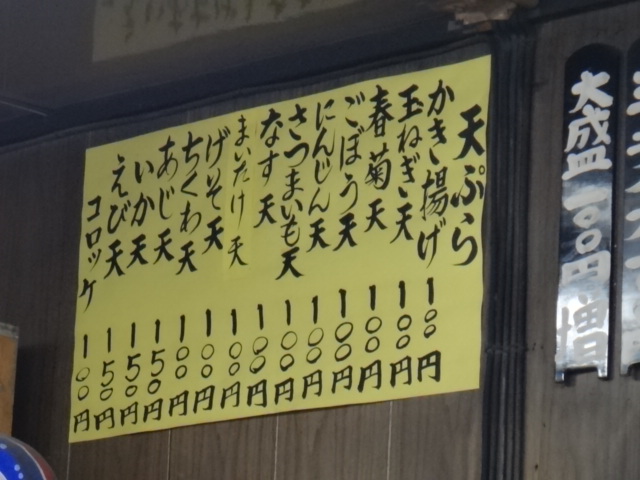 天ぷら
かき揚げ 100円
玉ねぎ天 100円
春菊天 100円
ごぼう天 100円
にんじん天 100円
さつまいも天 100円
なす天 100円
まいたけ天 100円
げそ天 100円
ちくわ天 100円
あじ天 150円
いか天 150円
えび天 150円
コロッケ 100円
大盛 100円増